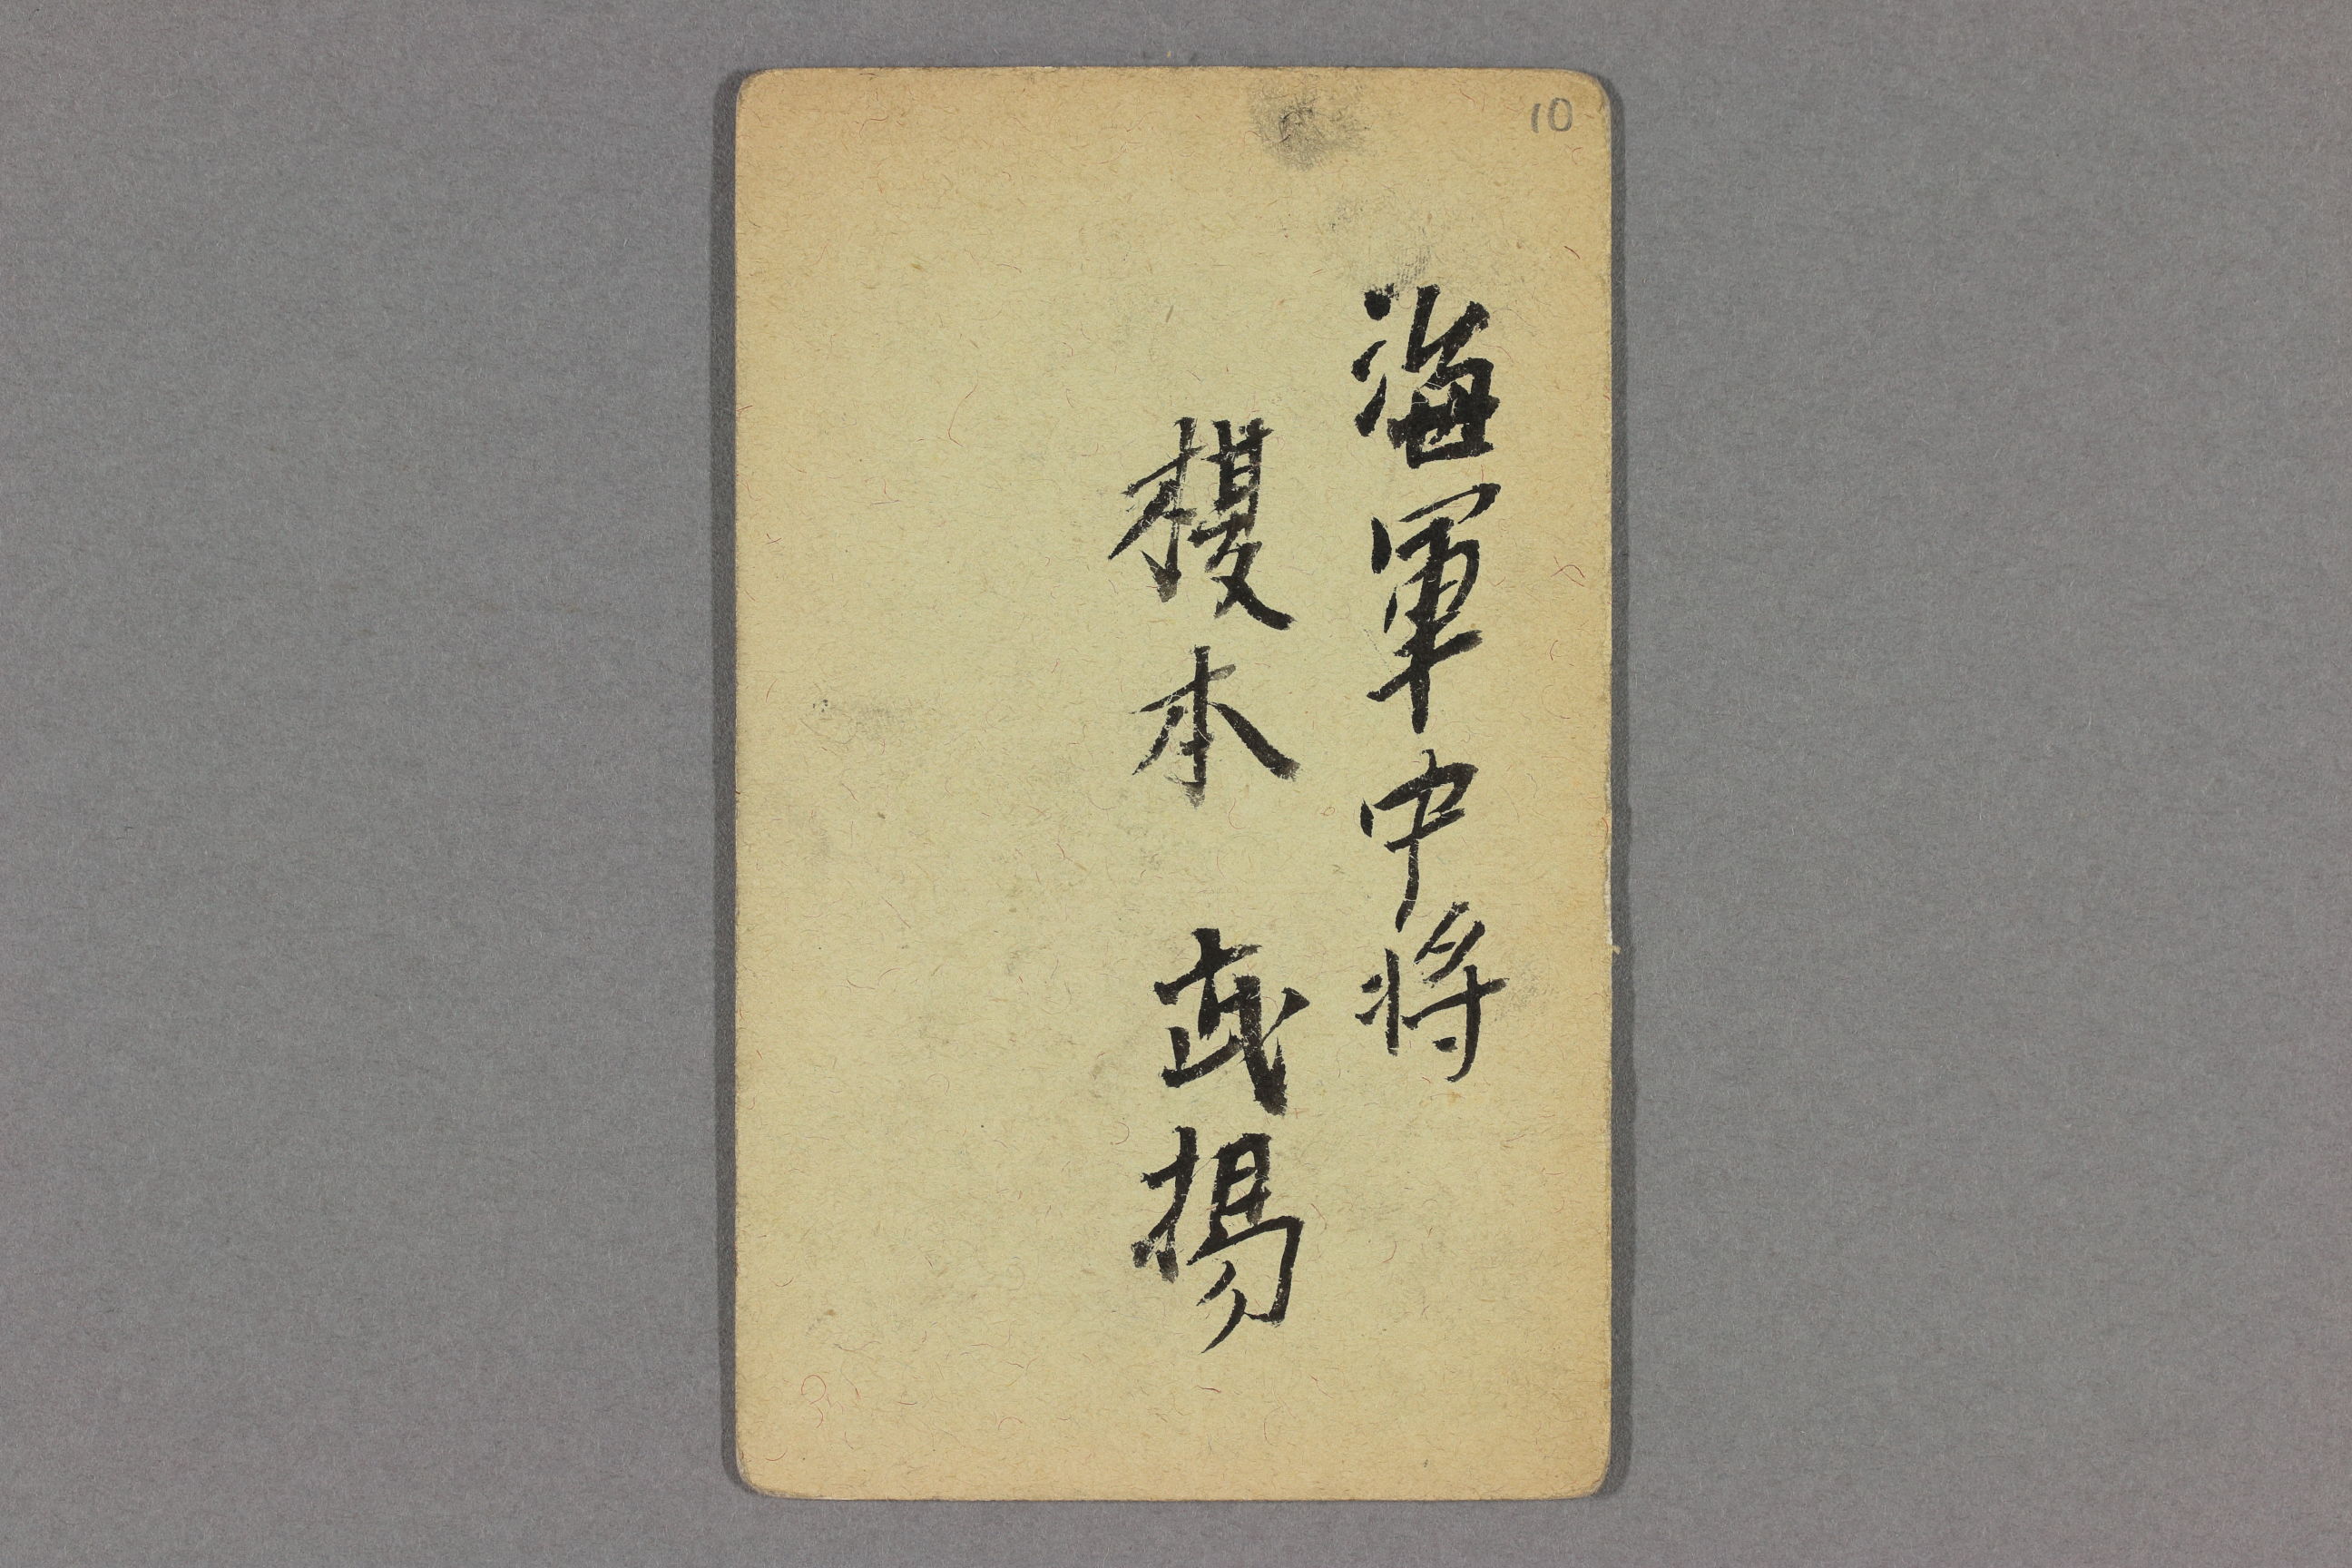 10
海軍中将
榎本武揚